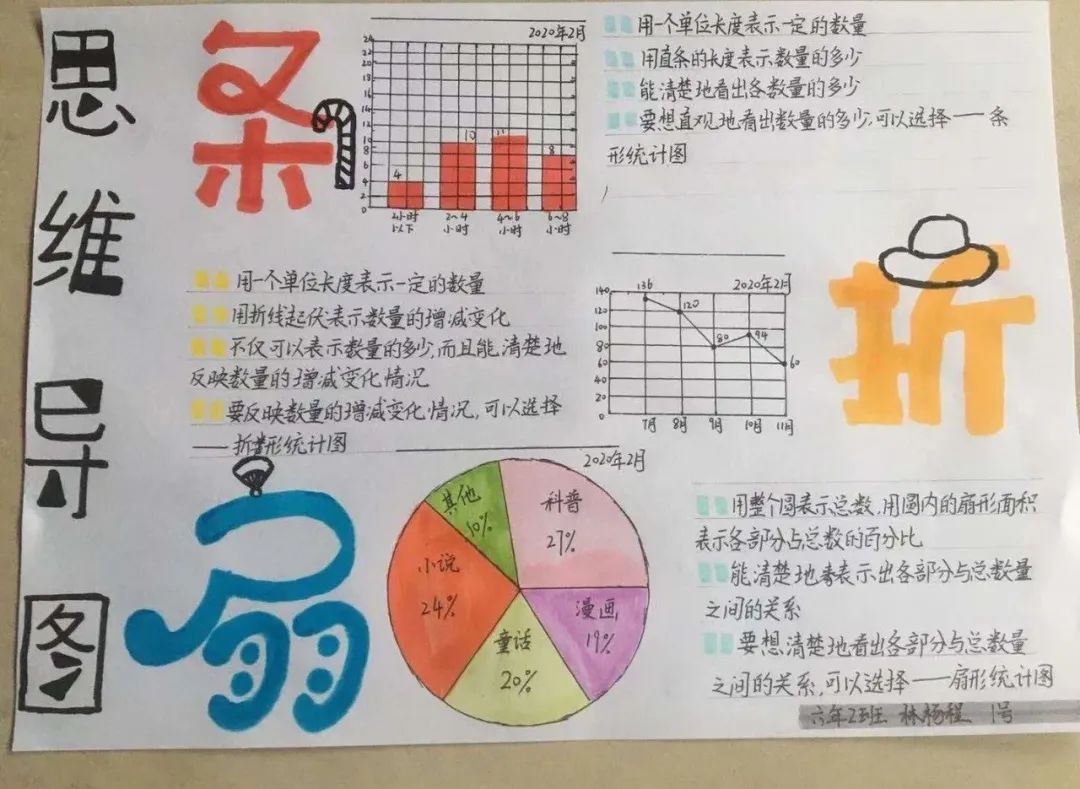 思
维
导
图
条
2020年2月
24
22
20
18
16
14
12
10
8
6
4
2
0
4
10
11
8
2小时
以下
2~4
小时
4~6
小时
6~8
小时
用一个单位长度表示一定的数量
用直条的长度表示数量的多少
能清楚地看出各数量的多少
要想直观地看出数量的多少,可以选择——条
形统计图
用一个单位长度表示一定的数量
用折线起伏表示数量的增减变化
不仅可以表示数量的多少,而且能,清楚地
反映数量的增减变化情况
要反映数量的增减变化情况,可以选择
——折形统计图
2020年2月
140
120
100
80
60
40
20
0
136
120
80
94
60
7月
8月
9月
10月
11月
折
扇
2020年2月
其他
10%
科普
27%
小说
24%
漫画
19%
童话
20%
用整个圆表示总数,用圆内的扇形面积
表示各部分占总数的百分比
能清楚地表示出各部分与总数量
之间的关系
要想清楚地看出各部分与总数量
之间的关系,可以选择——扇形统计图
六年2班 林杨程 1号